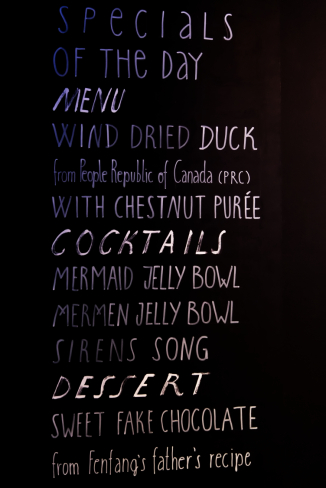 SPECIALS
OF THE DAY
MENU
WIND DRIED DUCK
from People Republic of Canada (PRC)
WITH CHESTNUT PURÉE
COCKTAILS
MERMAID JELLY BOWL
MERMEN JELLY BOWL
SIRENS SONG
DESSERT
SWEET FAKE CHOCOLATE
from Fenfang's father's recipe